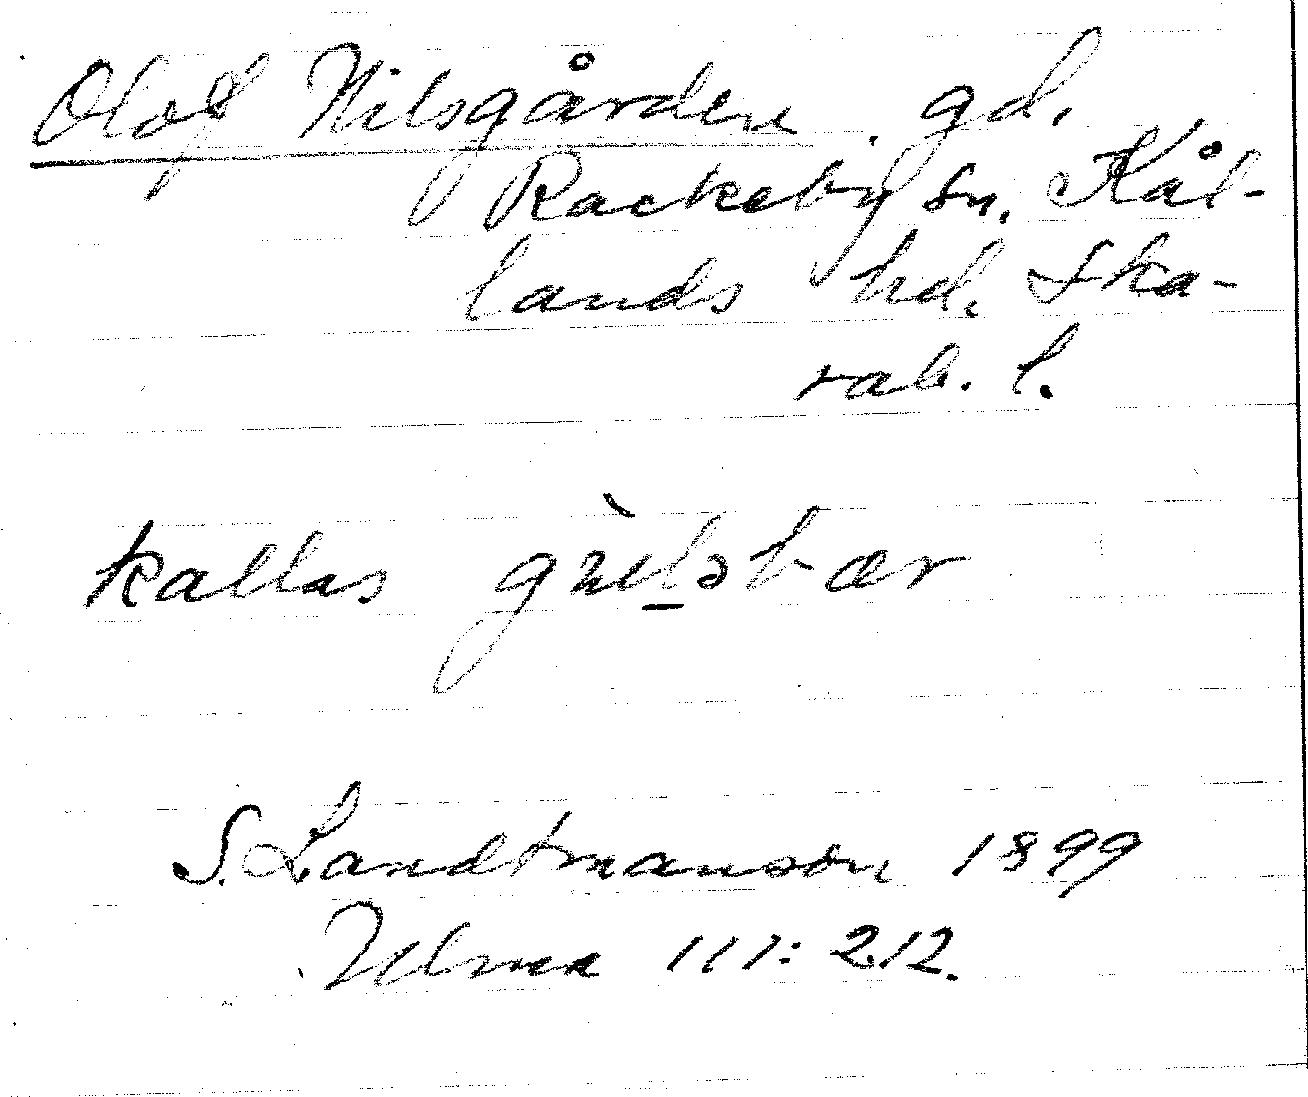 Olof Nilsgården, gd.
Rackeby sn. Kål-
lands hd. Ska-
rab. l.
kallas
S. Landtmanson 1899
Ulma 111: 212.